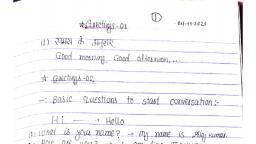 ①
★ Greetings-01
04-11-2021
(1) समय के अनुसार
Good morning, Good afternoon, ...
★ Greetings-02
– Basic Questions to start conversation:-
Hi → Hello
What is your name? → My name is Kumar.